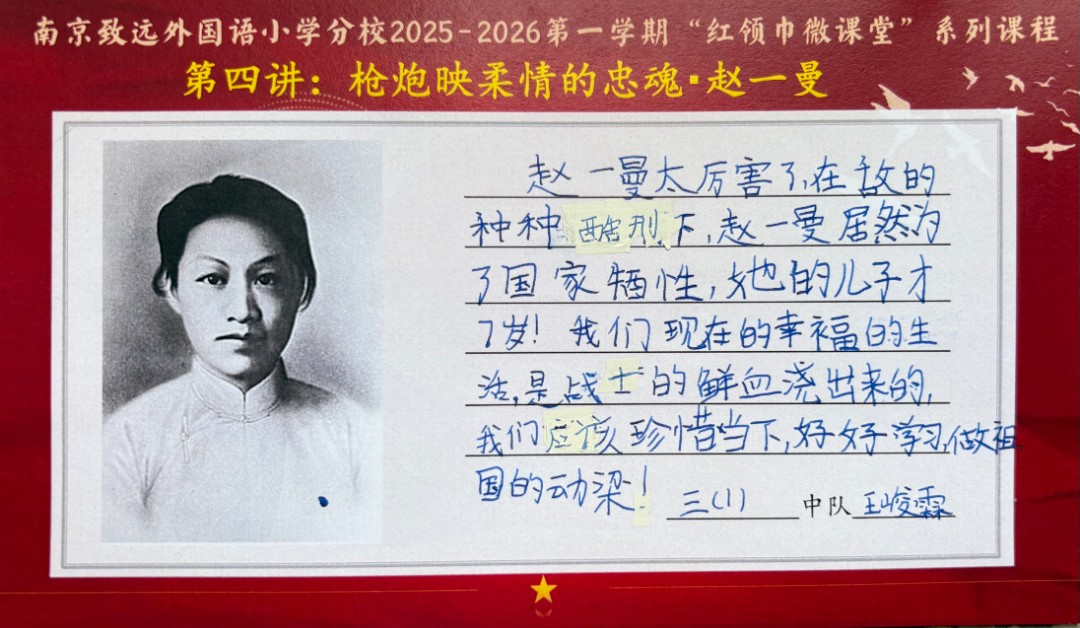 南京致远外国语小学分校2025-2026第一学期“红领巾微课堂”系列课程
第四讲：枪炮映柔情的忠魂·赵一曼
赵一曼太厉害了，在敌的
种种酷刑下，赵一曼居然为
了国家牺性，她的儿子才
7岁！我们现在的幸福的生
活，是战士的鲜血浇出来的，
我们应该珍惜当下，好好学习，做祖
国的动梁！
三(1)中队王峻霖